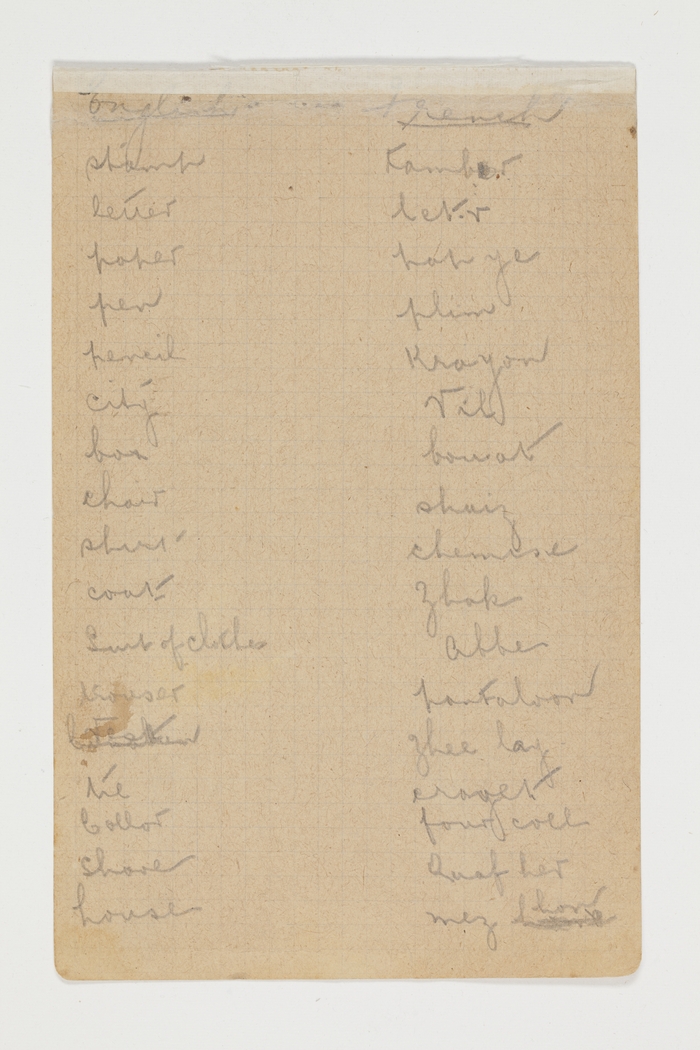 English French
stamp Tamber
letter let.r
paper pap ye
pen plim
pencil Krayon
city Vil
box bouat
chair shaiz
shirt chemise
coat Zhak
Suit of clothes abbe
trouser pantaloon
zhee lay
tie cravet
Collar four coll
shave Ruaf her
house mez